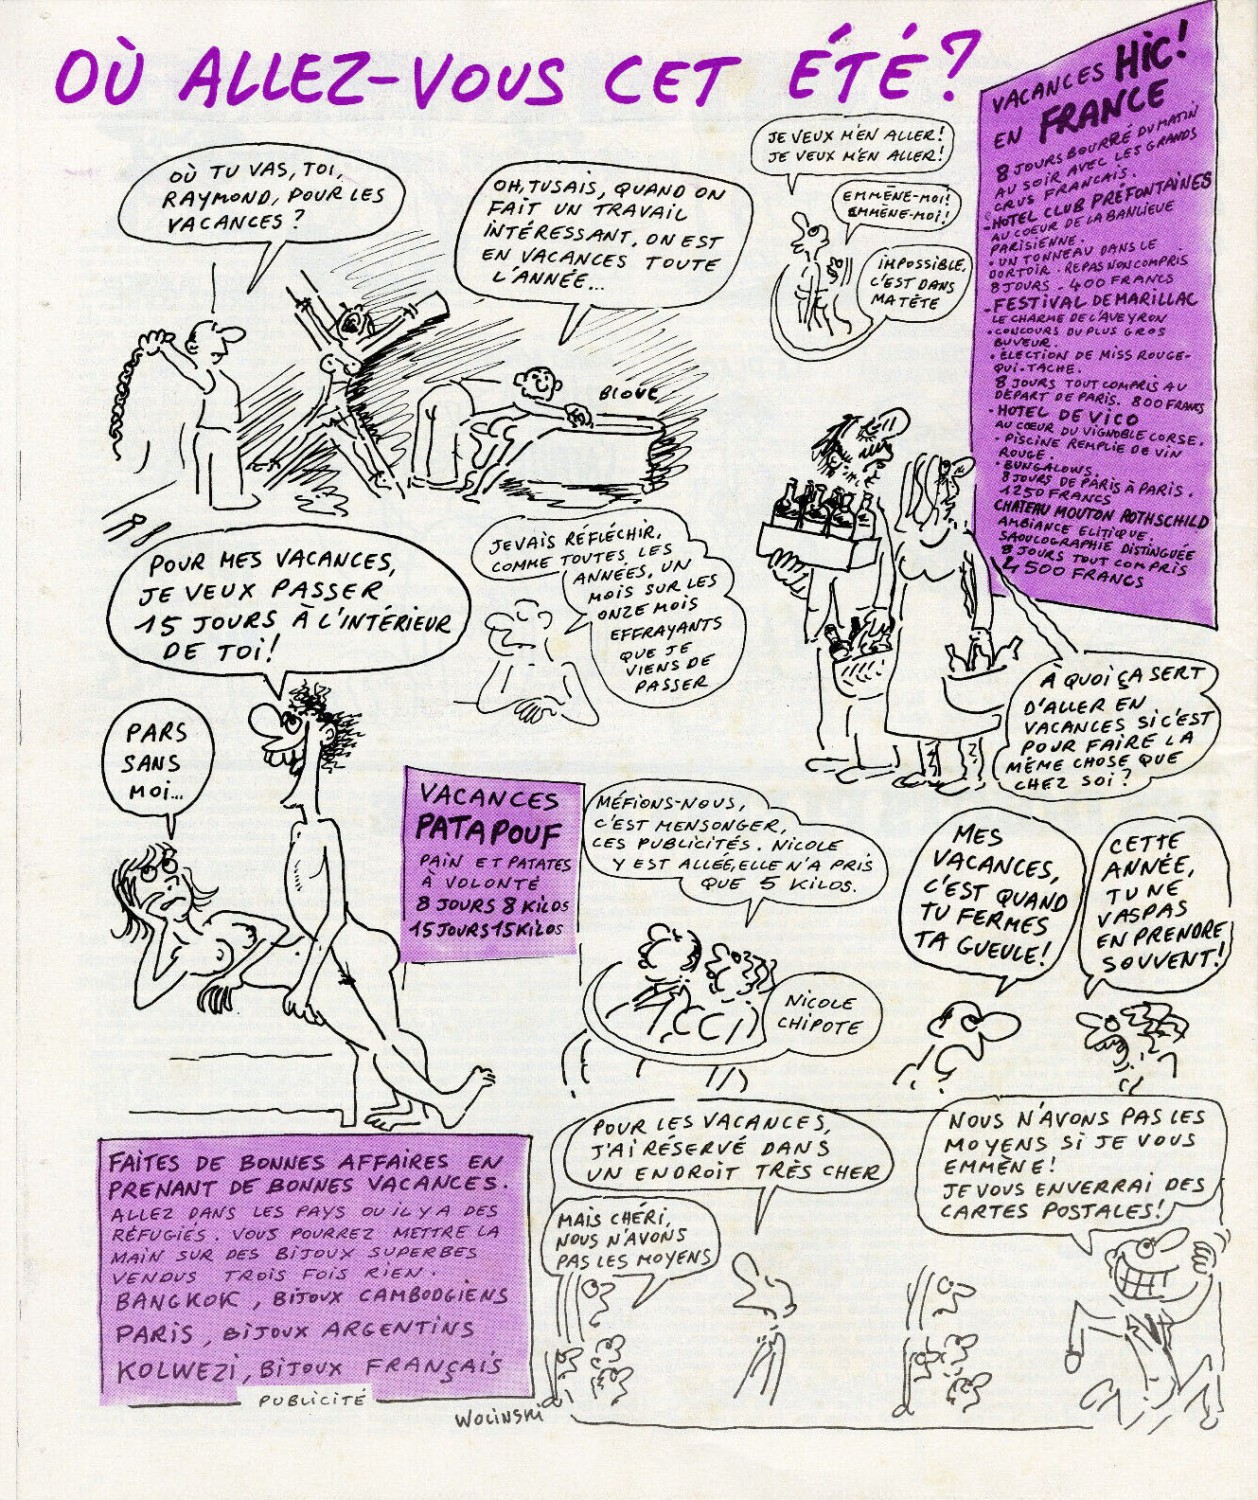 OÙ ALLEZ-VOUS CET ÉTÉ?
OÙ TU VAS, TOI,
RAYMOND, POUR LES
VACANCES?
OH, TU SAIS, QUAND ON
FAIT UN TRAVAIL
INTÉRESSANT, ON EST
EN VACANCES TOUTE
L'ANNÉE...
JE VEUX M'EN ALLER!
JE VEUX M'EN ALLER!
EMMÈNE-MOI!
EMMÈNE-MOI!
IMPOSSIBLE,
C'EST DANS
MA TÊTE
VACANCES HIC!
EN FRANCE
8 JOURS BOURRÉ DU MATIN
AU SOIR AVEC LES GRANDS
CRUS FRANCAIS.
-HOTEL CLUB PRÉFONTAINES
AU COEUR DE LA BANLIEUE
PARISIENNE.
• UN TONNEAU DANS LE
DORTOIR. REPAS NON COMPRIS
8 JOURS. 400 FRANCS
-FESTIVAL DE MARILLAC
LE CHARME DE L'AVEYRON
• CONCOURS DU PLUS GROS
BUVEUR.
• ÉLECTION DE MISS ROUGE-
QUI-TACHE.
8 JOURS TOUT COMPRIS AU
DÉPART DE PARIS. 800 FRANCS
-HOTEL DE VICO
AU COEUR DU VIGNOBLE CORSE.
- PISCINE REMPLIE DE VIN
ROUGE.
• BUNGALOWS.
8 JOURS DE PARIS À PARIS.
1250 FRANCS
CHATEAU MOUTON ROTHSCHILD
AMBIANCE ELITIQUE.
SAOULOGRAPHIE DISTINGUÉE
8 JOURS TOUT COMPRIS
4500 FRANCS
POUR MES VACANCES,
JE VEUX PASSER
15 JOURS À L'INTÉRIEUR
DE TOI!
PARS
SANS
MOI...
JE VAIS RÉFLÉCHIR,
COMME TOUTES LES
ANNÉES, UN
MOIS SUR LES
ONZE MOIS
EFFRAYANTS
QUE JE
VIENS DE
PASSER
À QUOI ÇA SERT
D'ALLER EN
VACANCES SI C'EST
POUR FAIRE LA
MÊME CHOSE QUE
CHEZ SOI?
VACANCES
PATAPOUF
PAIN ET PATATES
À VOLONTÉ
8 JOURS 8 KILOS
15 JOURS 15 KILOS
MÉFIONS-NOUS,
C'EST MENSONGER,
CES PUBLICITÉS. NICOLE
Y EST ALLÉE, ELLE N'A PRIS
QUE 5 KILOS.
NICOLE
CHIPOTE
MES
VACANCES,
C'EST QUAND
TU FERMES
TA GUEULE!
CETTE
ANNÉE,
TU NE
VAS PAS
EN PRENDRE
SOUVENT!
FAITES DE BONNES AFFAIRES EN
PRENANT DE BONNES VACANCES.
ALLEZ DANS LES PAYS OU IL Y A DES
RÉFUGIÉS. VOUS POURREZ METTRE LA
MAIN SUR DES BIJOUX SUPERBES
VENDUS TROIS FOIS RIEN.
BANGKOK, BIJOUX CAMBODGIENS
PARIS, BIJOUX ARGENTINS
KOLWEZI, BIJOUX FRANÇAIS
PUBLICITÉ
POUR LES VACANCES,
J'AI RÉSERVÉ DANS
UN ENDROIT TRÈS CHER
MAIS CHÉRI,
NOUS N'AVONS
PAS LES MOYENS
NOUS N'AVONS PAS LES
MOYENS SI JE VOUS
EMMÈNE!
JE VOUS ENVERRAI DES
CARTES POSTALES!
WOLINSKI